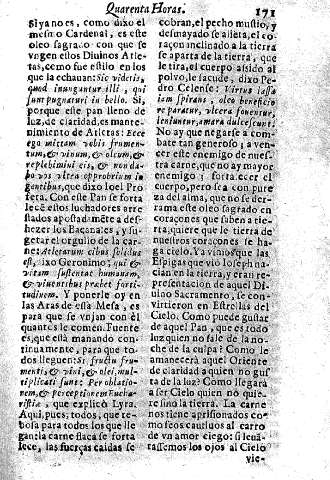 Quarenta Horas.
171
Si yà no es, como dixo el
mesmo Cardenal, es este
oleo sagrado con que se
vngen estos Diuinos Atle-
tas, como se estilo en los
que la echauan: Sic videris,
quod inungantur illi, qui
sunt pugnaturi in bello. Si,
porque este pan lleno de
luz, de claridad, es mante-
nimiento de Atletas: Ecce
ego mittam vobis frumen-
tum, & vinum, & oleum, &
replebimini eis, & non da-
bo vos vltra opprobrium in
gentibus, que dixo Ioel Pro
feta. Con este Pan se forta
lecē estos luchadores arre
stados apostadamēte a des-
hezer los Bacanales, y su-
getar el orgullo de la car-
ne: Atletarum cibus solidus
est, dixo Geronimo; qui &
vitam sustentat humanam,
& viuentibus præbet forti-
tudinem. Y ponerle oy en
las Aras de esta Mesa, es
para que se vnjan con èl
quantos le comen. Fuente
es, que està manando con-
tinuamente, para que to-
dos lleguen: Si fructu fru-
menti, & vini, & olei, mul-
tiplicati sunt: Per oblatio-
nem, & perceptionem Eucha-
ristiæ, que explicò Lyra.
Aqui, pues, todos, que re-
bosa para todos los que lle
gan: la carne flaca se forta
lece, las fuerças caidas se
cobran, el pecho mustio, y
desmayado se alieta, el co-
raçon inclinado a la tierra
se aparta de la tierra, que
le tira, el cuerpo asido al
polvo, le sacude, dixo Pe-
dro Celense: Virtus lassa
iam spirans, oleo beneficio
reparatur, vlcera fouentur,
leniuntur, amara dulcescunt.
No ay que negarse a comba-
te tan generoso; a ven-
cer este enemigo de nues-
tra carne, que no ay mayor
enemigo; fortalecer el
cuerpo, pero sea con pure
za del alma, que no se der-
rama este oleo sagrado en
coraçones que saben a tie-
rra, quiere que le tierra de
nuestros coraçones se ha-
ga cielo. Ya vimos que las
Espigas que viò Ioseph na-
cian en la tierra, y eran re-
presentacion de aquel Di-
uino Sacramento, se con-
virtieron en Estrellas del
Cielo. Como puede gustar
de aquel Pan, que es todo
luz quien no sale de la no-
che de la culpa? Como le
amanecerà aquel Oriente
de claridad a quien no gus
ta de la luz? Como llegarà
a ser Cielo quien no quie-
re sino la tierra. La carne
nos tiene aprisionados co-
mo feos cautiuos al carro
de vn amor ciego: si leuā-
tassemos los ojos al Cielo
vie-